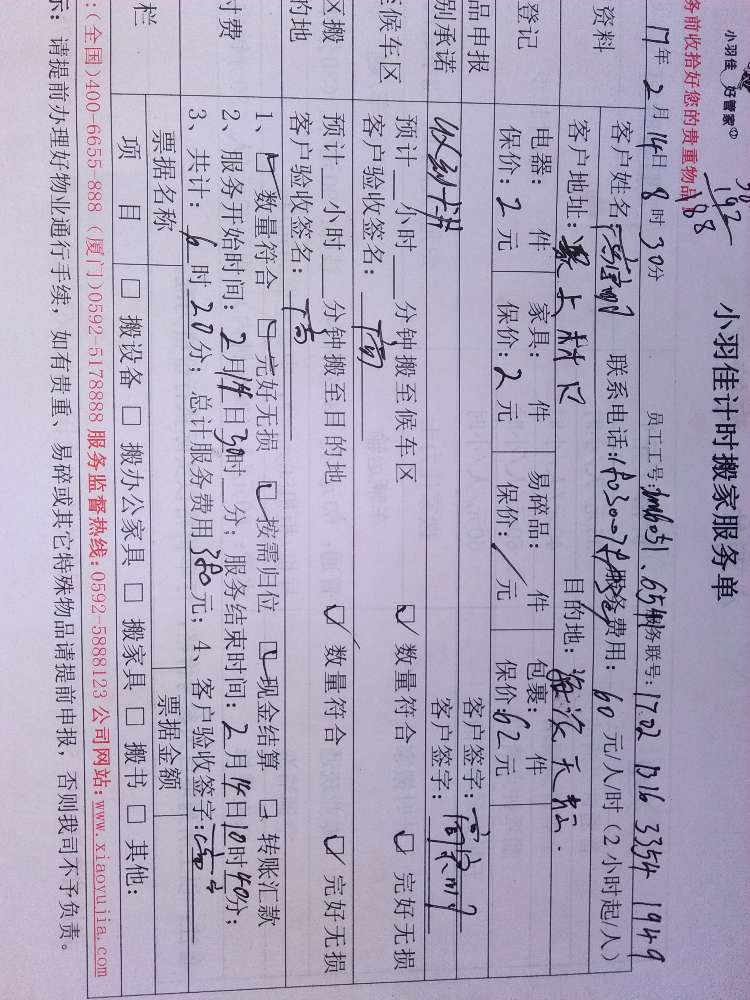 小羽佳 好管家
务前收拾好您的贵重物品
192
188
小羽佳计时搬家服务单
17年2月14日8时30分 员工工号: 654 服务联号:1702 1316 3354 1949
资料 客户姓名 联系电话: 服务费用: 60 元/人/时(2小时起/人)
客户地址: 目的地:
登记 电器: 件 家具: 件 易碎品: 件 包裹: 件
保价:2元 保价:2元 保价:/元 保价:62元
品申报 客户签字:
别承诺 客户签字:
候车区 预计__小时__分钟搬至候车区 数量符合 完好无损
客户验收签名:
区搬 预计__小时__分钟搬至目的地 数量符合 完好无损
的地 客户验收签名:
付费 1、 数量符合 完好无损 按需归位 现金结算 转账汇款
2、服务开始时间:2月14日30时__分,服务结束时间:2月14日10时40分;
3、共计:6时20分;总计服务费用380元;4、客户验收签字:
栏 票据名称 票据金额
项 目 □ 搬设备 □ 搬办公家具 □ 搬家具 □ 搬书 □ 其他:
:(全国)400-6655-888 (厦门)0592-5178888 服务监督热线:0592-5888123 公司网站:www.xiaoyujia.com
示:请提前办理好物业通行手续,如有贵重、易碎或其它特殊物品请提前申报,否则我司不予负责。